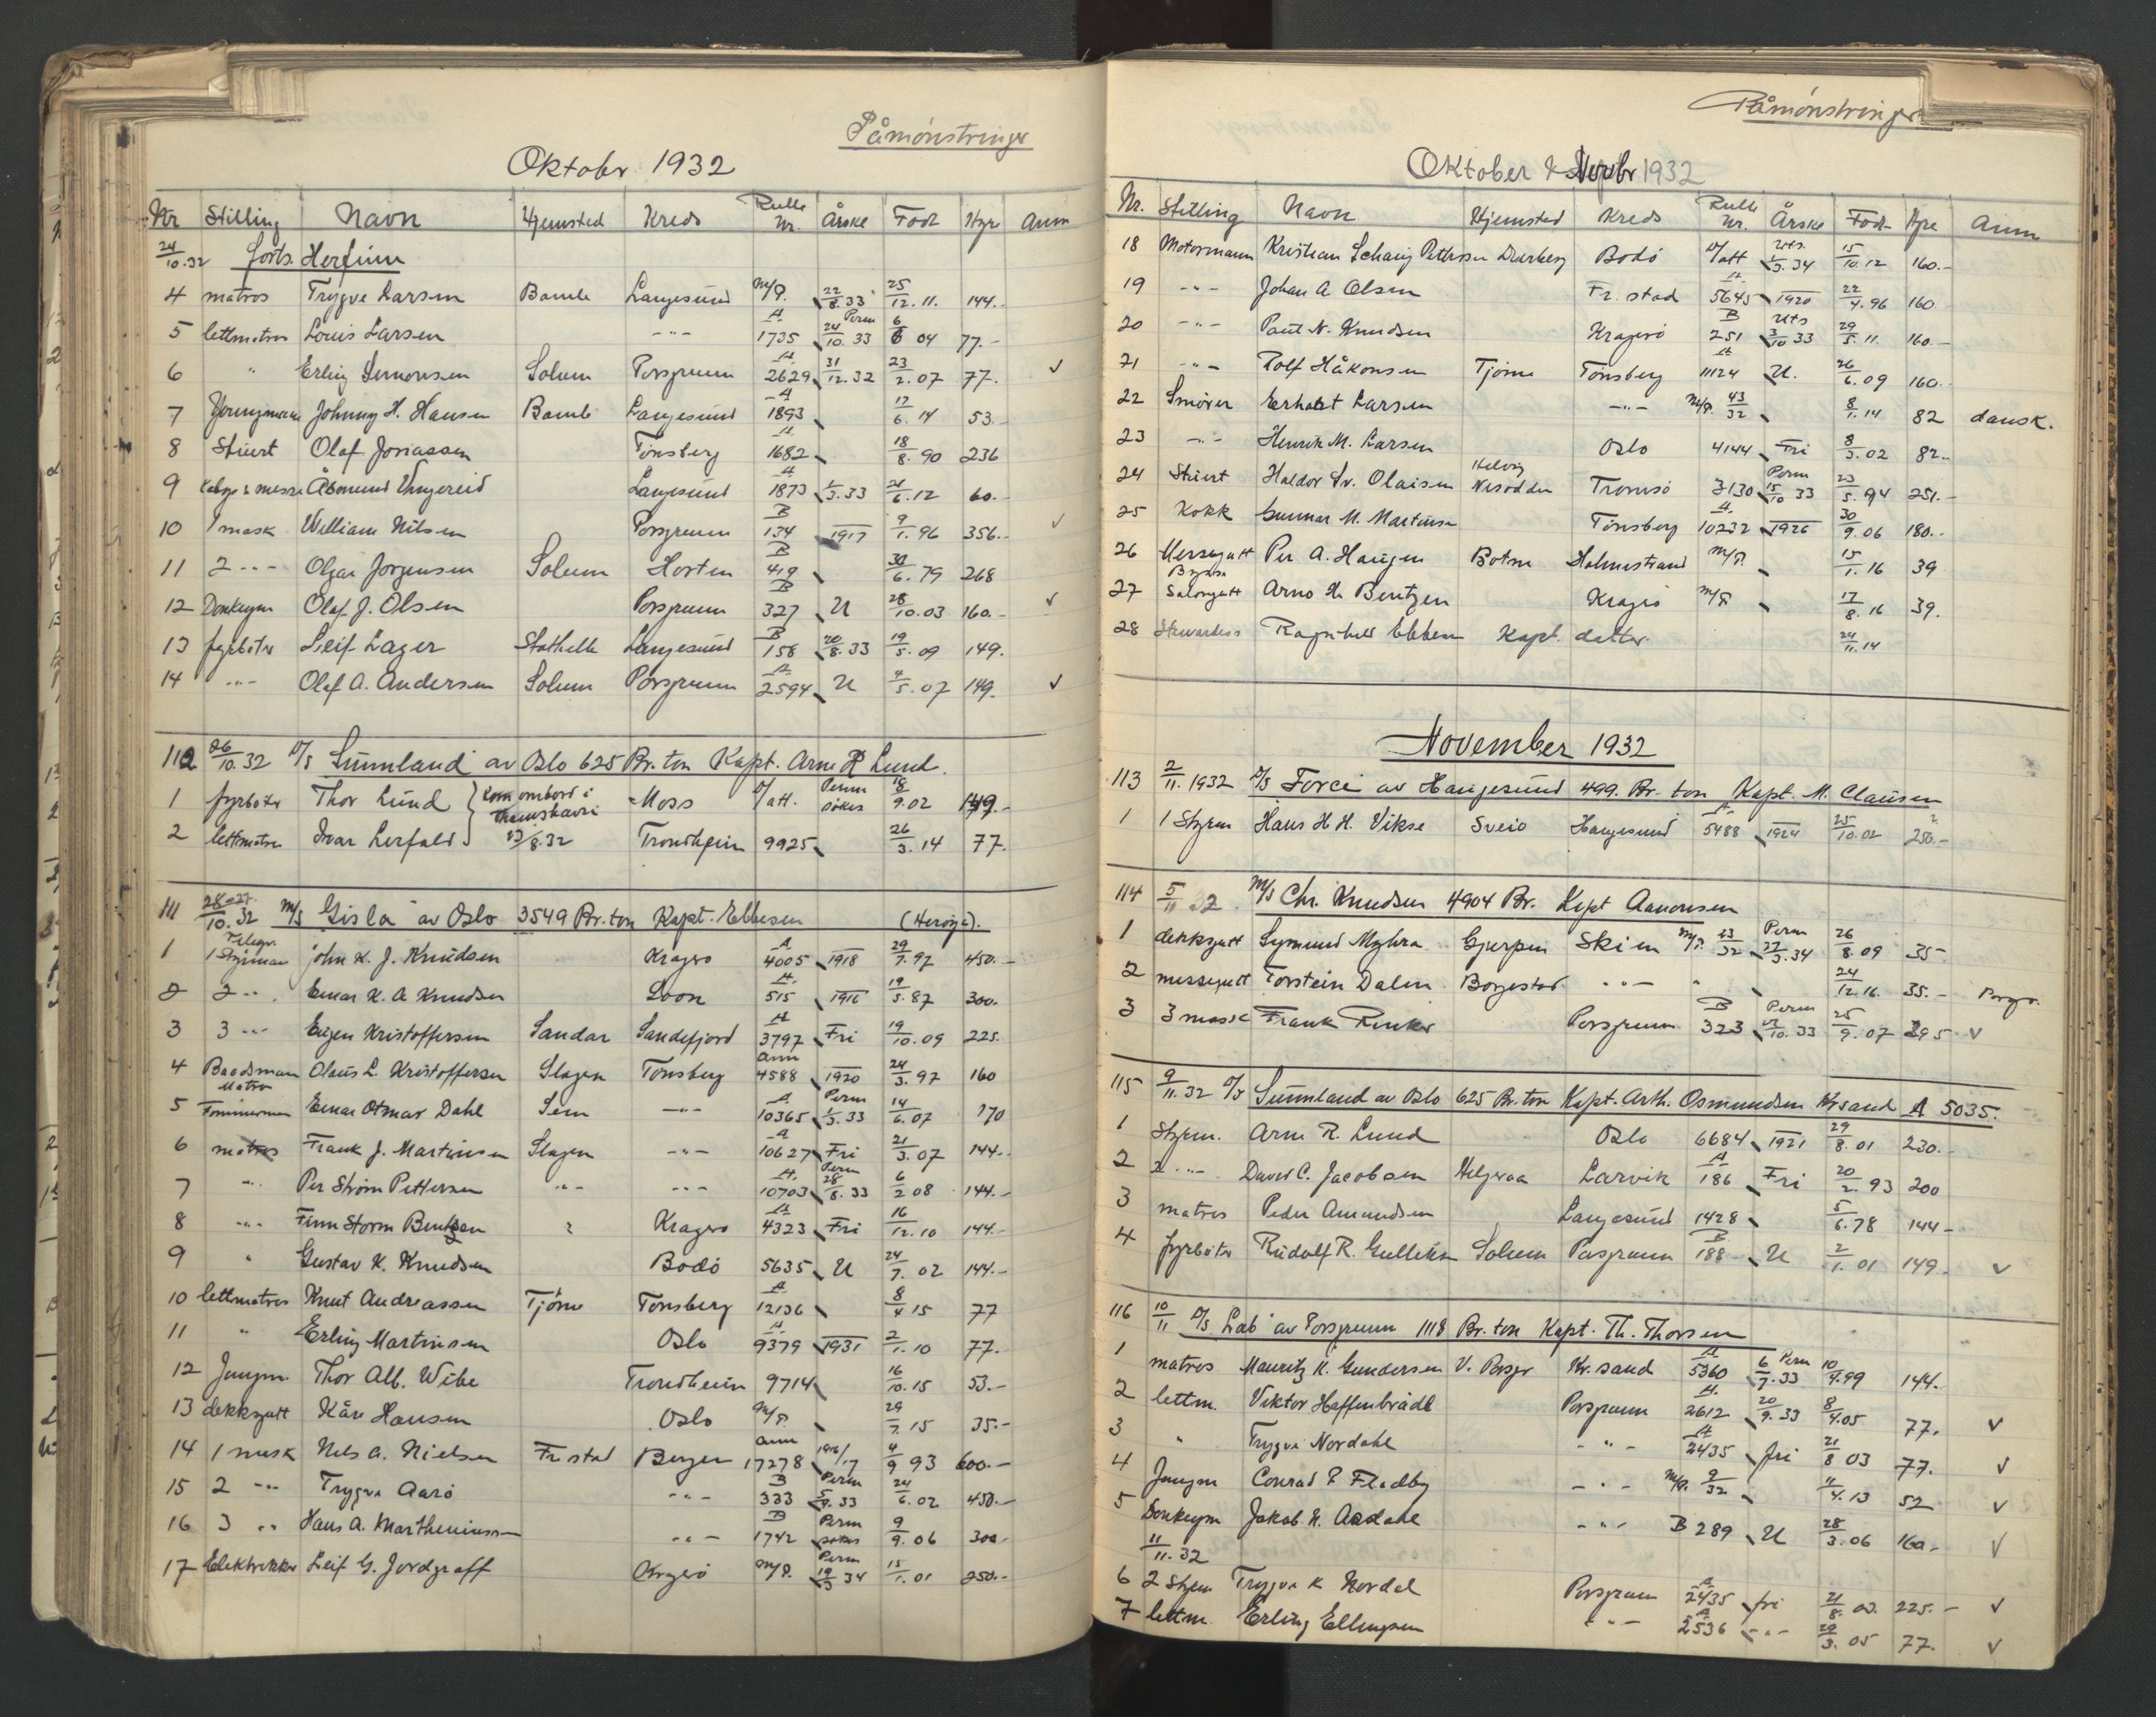 Påmönstringer
Oktobr 1932
Nr Stilling Navn Hjemsted Kreds Rulle Nr. Årskl Född Hyre Anm
24/10.32 forts. Herfinn
4 matros Trygve Larsen Bamle Langesund M/P. 22/8.33 25/12.11. 144.-
5 lettmatros Louis Larsen -"- A 1735 Perm 24/10.33 6/6 04 77.-
6 " Erling Simonsen Solum Porsgrunn A 2629 31/12.32 23/2.07 77. ✓
7 Youngmann Johnny H. Hansen Bamle Langesund A 1893 17/6.14 53.-
8 Stuert Olaf Jonassen Tönsberg A 1682 18/8.90 236
9 Åsmund Ungereid Langesund A 1873 1/3.33 21/6.12 60.-
10 1 mask William Nilsen Porsgrunn B 134 1917 9/1.96 356.- ✓
11 2 -"- Olgar Jorgensen Solum Horten B 419 30/6.79 268
12 Donkeym Olaf J. Olsen Porsgrunn B 327 U 28/10.03 160.- ✓
13 fyrböter Leif Lager Stathelle Langesund B 158 20/8.33 19/5.09 149.
14 -"- Olaf A. Andersen Solum Porsgrunn A 2594 U 4/5.07 149. ✓
112 26/10.32 D/S Sunnland av Oslo 625 Br. ton Kapt. Arne R Lund.
1 fyrböter Thor Lund } Kom ombord i Thamshavn Moss D/att. Perm sökes 18/9.02 149.-
2 lettmatros Ivar Lerfald } 13/8.32 Trondheim 9925 26/3.14 77.
111 28-29/10.32 M/S Gisla av Oslo 3549 Br. ton Kapt. Ebbesen (Heröya).
1 Telegr. 1 Styrman John K. J. Knudsen Kragerö A 4005 1918 29/7.97 450.-
2 2 -"- Einar K. A Knudsen Loon A 515 1916 19/5.87 300.
3 3 -"- Eugen Kristoffersen Sandar Sandefjord A 3797 Fri 19/10.09 225.
4 Baadsman Matros Olaus L. Kristoffersen Slagen Tönsberg Ann 4588 1920 24/3.97 160
5 Tömmerman Einar Otmar Dahl Sem -"- A 10365 Perm 1/3.33 14/6.07 170
6 matros Frank J. Martinsen Slagen -"- A 10627 Fri 21/3.07 144.-
7 -"- Per Ström Pettersen -"- -"- A 10703 Perm 28/8.33 6/2 08 144.-
8 -"- Finn Storm Bentzen " Kragerö A 4323 Fri 16/12.10 144.-
9 " Gustav K. Knudsen Bodö 5635 U 24/7.02 144.-
10 lettmatros Knut Andreassen Tjöme Tönsberg A 12136 8/4 15 77
11 " Erling Martinsen Oslo A 9379 1931 2/1.10 77.
12 Jungm. Thor Alb. Wibe Trondheim 9714 16/10.15 53.-
13 dekksgutt Kåre Hansen Oslo M/P. 29/7.15 35.-
14 1 mask Nels A. Nielsen Fr stad Bergen Ann 17278 1916/17 4/9 93 600.-
15 2 -"- Trygve Aarö -"- B 333 Perm 5/9.33 24/6.02 450.-
16 3 -"- Hans A. Marthinussen -"- B 1742 Perm sökes 9/9.06 300
17 Elektriker Leif G. Jordgraff Kragerö M/P. Perm 19/3 34 15/1.01 250.-
Påmönstringer
Oktober & Novbr 1932
Nr. Stilling Navn Hjemsted Kreds Rulle Nr. Årskl Född Hyre Anm
18 Motormann Kristian Schanig Pettersen Bodö D/att Uts. 1/3.34 15/10.12 160.-
19 -"- Johan A Olsen Fr. stad A 5645 1920 22/4.96 160.
20 -"- Paul N. Knudsen Kragerö B 251 Uts 3/10 33 29/5.11. 160.-
21 -"- Rolf Håkonsen Tjöme Tönsberg A 11124 U. 26/6.09 160.
22 Smörer Erhart Larsen -"- M/P. 43/32 8/1.14 82 dansk.
23 -"- Henrik M. Larsen Oslo 4144 Fri 8/3.02 82.-
24 Stuert Haldor Sv. Olaisen Nesodden Tromsö 3130 Perm 15/10 33 23/5.94 251.-
25 Kokk Gunnar M. Martinsen Tönsberg A 10232 1926 30/9.06 180.-
26 Messegutt Per A. Haugen Botne Holmestrand M/P. 15/1.16 39
27 Byssa Salongutt Arno H. Bentzen Kragerö M/P. 17/8.16 39.
28 Stewardess Ragnhild Ebbesen Kapt. datter. 24/11.14
November 1932
113 2/11.1932 D/S Force av Haugesund 499. Br. ton Kapt. M. Clausen
1 1 Styrm Hans H H. Vikse Sveio Haugesund A 5488 1924 25/10.02 250.-
114 5/11 32 M/S Chr. Knudsen 4904 Br. Kapt Aanonsen
1 dekksgutt Sigmund Myhra Gjerpen Skien M/P. 23/32 Perm 27/3.34 26/8.09 35-
2 messegutt Torstein Dalen Borgestad -"- " 24/12.16. 35.- Porsgr.
3 3 mask Frank Rinker Porsgrunn B 323 Perm 10.33 25/9.07 295 ✓
115 9/11.32 D/S Sunnland av Oslo 625 Br. ton Kapt. Arth. Osmundsen Kr sand A 5035.
1 Styrm. Arne R. Lund Oslo 6684 1921 29/8.01 230.-
2 2 -"- David C. Jacobsen Helgeroa Larvik A 186 Fri 20/2.93 200
3 matros Peder Amundsen Langesund 1428 5/6.78 144-
4 fyrböter Rudolf R. Gulliksen Solum Porsgrunn B 188 U 2/1.01 149. ✓
116 10/11 D/S Lab av Porsgrunn 1118 Br. ton Kapt. Th. Thorsen
1 matros Mauritz K. Gundersen V. Porsgr Kr. sand A 5360 6 Perm/7.33 10/4.99 144.
2 lettm. Viktor Haffenbrädl Porsgrunn A 2612 20/9.33 8/4.05 77. ✓
3 " Trygve Nordahl -"- A 2435 fri 21/8 03 77. ✓
4 Jungm Conrad P Fladby -"- M/P. 9/32 11/4.13 52 ✓
5 Donkeym Jakob N. Aasdahl -"- B 289 U 28/3.06 160.- ✓
11/11.32
6 2 Styrm Trygve K Nordal Porsgrunn A 2435 fri 21/8. 03. 225.- ✓
7 lettm. Erling Ellingsen -"- A 2536 -"- 29/3.05 77. ✓